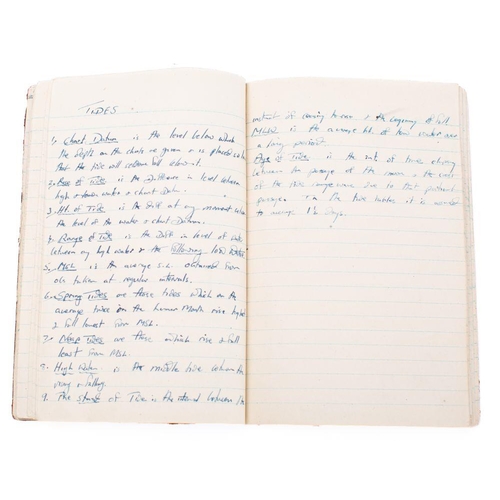 TIDES.
1, Chart Datum is the level below which
the depths on the charts are given & is placed so low
that the tide will seldom fall below it.
2, Rise of Tide is the difference in level between
high water & chart Datum.
3, Ht. of Tide is the at any moment between
the level of the water & chart Datum.
4. Range of Tide is the Diff in level of water
between any high water & the following low water
5, MSL is the average s.l. obtained from
obs taken at regular intervals.
6, Spring Tides are those tides which on the
average twice in the lunar Month rise highest
& fall lowest from MSL.
7. Neap Tides are those which rise & fall
least from MSL.
8. High Water is the middle time between the
& falling.
9. The stand of Tide is the between the
moment of coming to rest & the beginning to fall
MLW is the average ht. of low water over
a long period.
Age of Tide is the int. of time elapsing
between the passage of the moon & the
of the tide due to that particular
passage. In the tide tables it is
1½ Days.